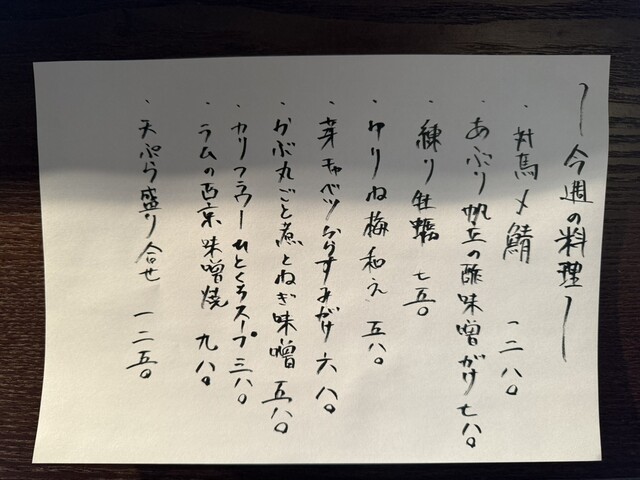 〜今週の料理〜
・対馬〆鯖 一二八〇
・あぶり帆立の酢味噌がけ 七八〇
・練り牡蠣 七五〇
・ゆりね梅和え 五八〇
・芽キャベツからすみがけ 六八〇
・かぶ丸ごと煮とねぎ味噌 五八〇
・カリフラワーひとくちスープ 三八〇
・ラムの西京味噌焼 九八〇
・天ぷら盛り合せ 一二五〇